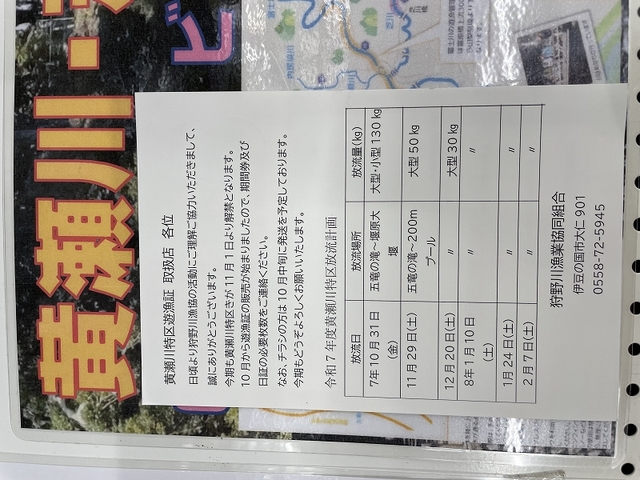 黄瀬川・
ビ
黄瀬川特区遊漁証 取扱店 各位
日頃より狩野川漁協の活動にご理解ご協力いただきまして、
誠にありがとうございます。
今期も黄瀬川特区さが11月1日より解禁となります。
10月から遊漁証の販売が始まりましたので、期間券及び
日証の必要枚数をご連絡ください。
なお、チラシの方は10月中旬に発送を予定しております。
今期もどうぞよろしくお願いいたします。
令和7年度黄瀬川特区放流計画
放流日 放流場所 放流量(kg)
7年10月31日(金) 五竜の滝~堰原大堰 大型・小型130kg
11月29日(土) 五竜の滝~200mプール 大型50kg
12月20日(土) 〃 大型30kg
8年1月10日(土) 〃 〃
1月24日(土) 〃 〃
2月7日(土) 〃 〃
狩野川漁業協同組合
伊豆の国市大仁901
0558-72-5945